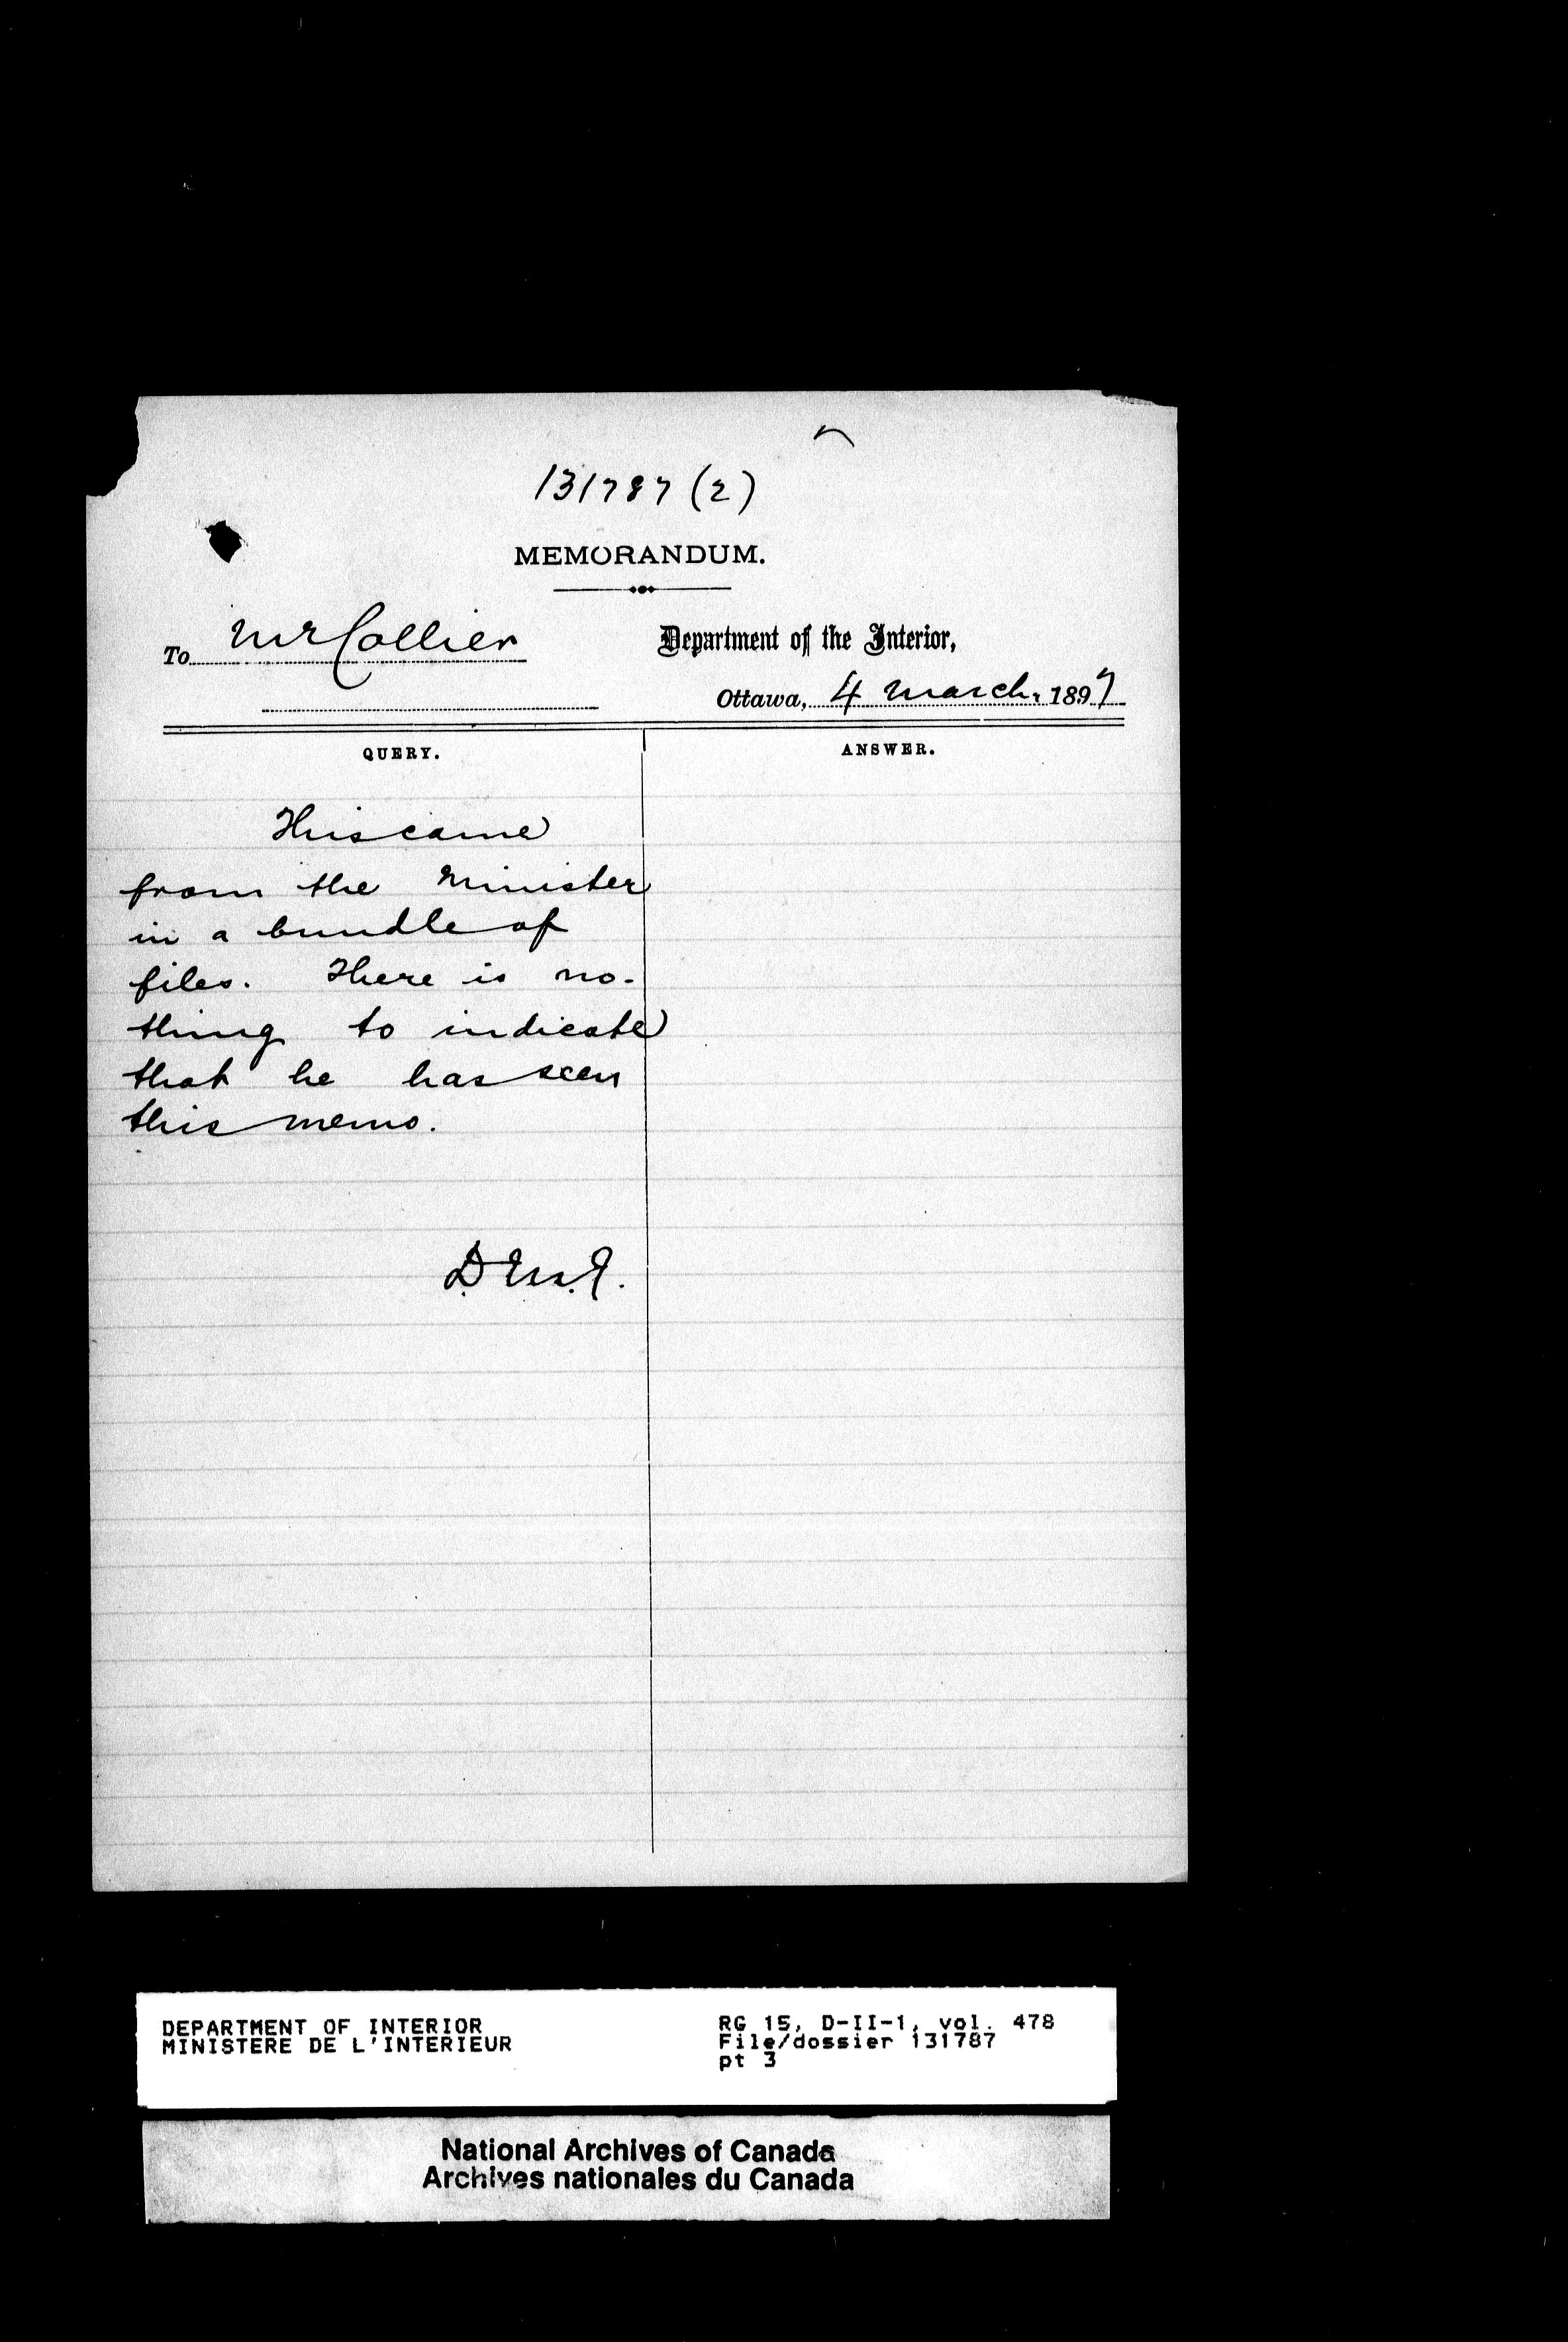 131787 (2)
MEMORANDUM.
To Mr Collier
Department of the Interior,
Ottawa, 4 March, 1897
QUERY.
ANSWER.
This came
from the Minister
in a bundle of
files. There is no-
thing to indicate
that he has seen
this memo.
DEPARTMENT OF INTERIOR
MINISTERE DE L'INTERIEUR
RG 15, D-II-1, vol. 478
File/dossier 131787
pt 3
National Archives of Canada
Archives nationales du Canada